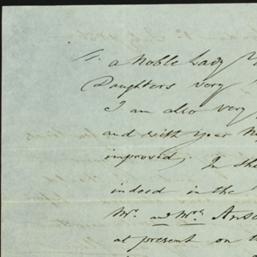 a Noble Lady
Daughters very
I am also very
and with your
improved. In the
indeed in the
Mr. and Mrs.
at present on